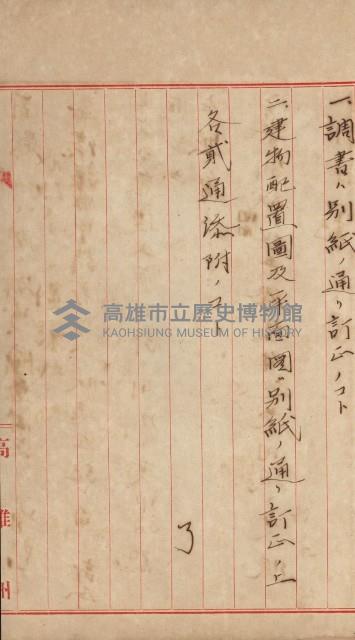 一、調書ハ別紙ノ通リ訂正ノコト
二、建物配置圖及平面図ハ別紙ノ通リ訂正ノ上
各貳通添附ノコト
了
高雄州
高雄市立歷史博物館
KAOHSIUNG MUSEUM OF HISTORY